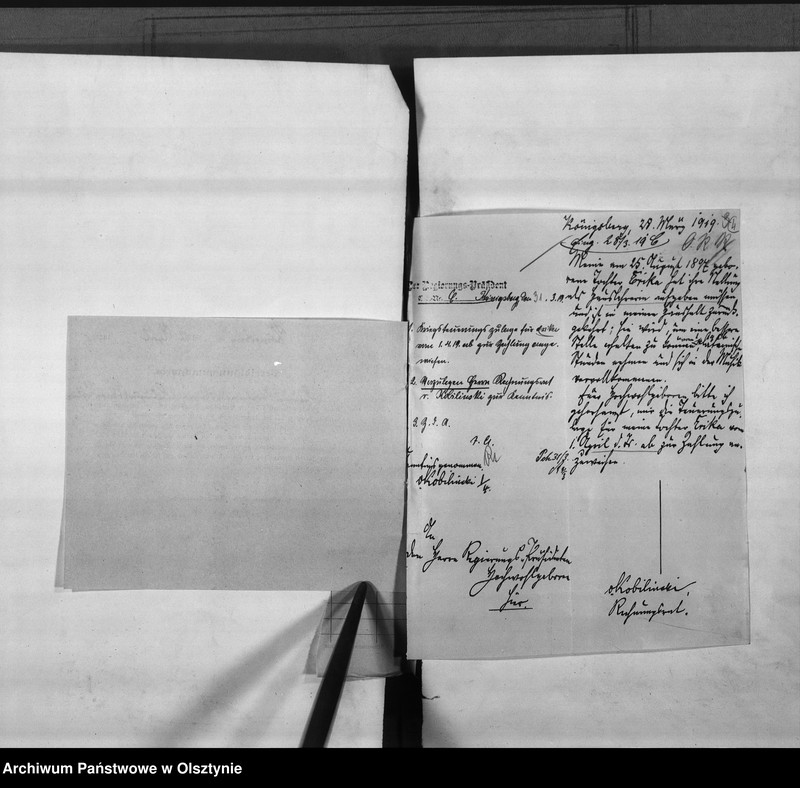 Königsberg, 28. März 1919.
Eing. 28/3. 19 C
Meine am 25. August 1897 gebo-
rene Tochter Erika hat ihre Stellung
als Hauslehrerin aufgeben müssen
und ist in meinen Haushalt zurück-
gekehrt; sie wird, um eine bessere
Stelle erhalten zu können,
Stunden nehmen und sich in der Musik
vervollkommnen.
Euer Hochwohlgeboren bitte ich
gehorsamst, mir die Teuerungszu-
lage für meine Tochter Erika vom
1. April d. Js. ab zur Zahlung an-
zuweisen.
Der Regierungs-Präsident
Königsberg den 31. 3. 19
1. Kriegsteuerungszulage für Erika
vom 1. 4. 19. ab zur Zahlung ange-
wiesen.
2. Vorzulegen Herrn Rechnungsrat
v. Kobilinski zur Kenntnis.
3. Z. d. A.
Kenntnis genommen
vKobilinski
An
den Herrn Regierungs-Präsidenten
Hochwohlgeboren
hier.
vKobilinski,
Rechnungsrat.
Archiwum Państwowe w Olsztynie